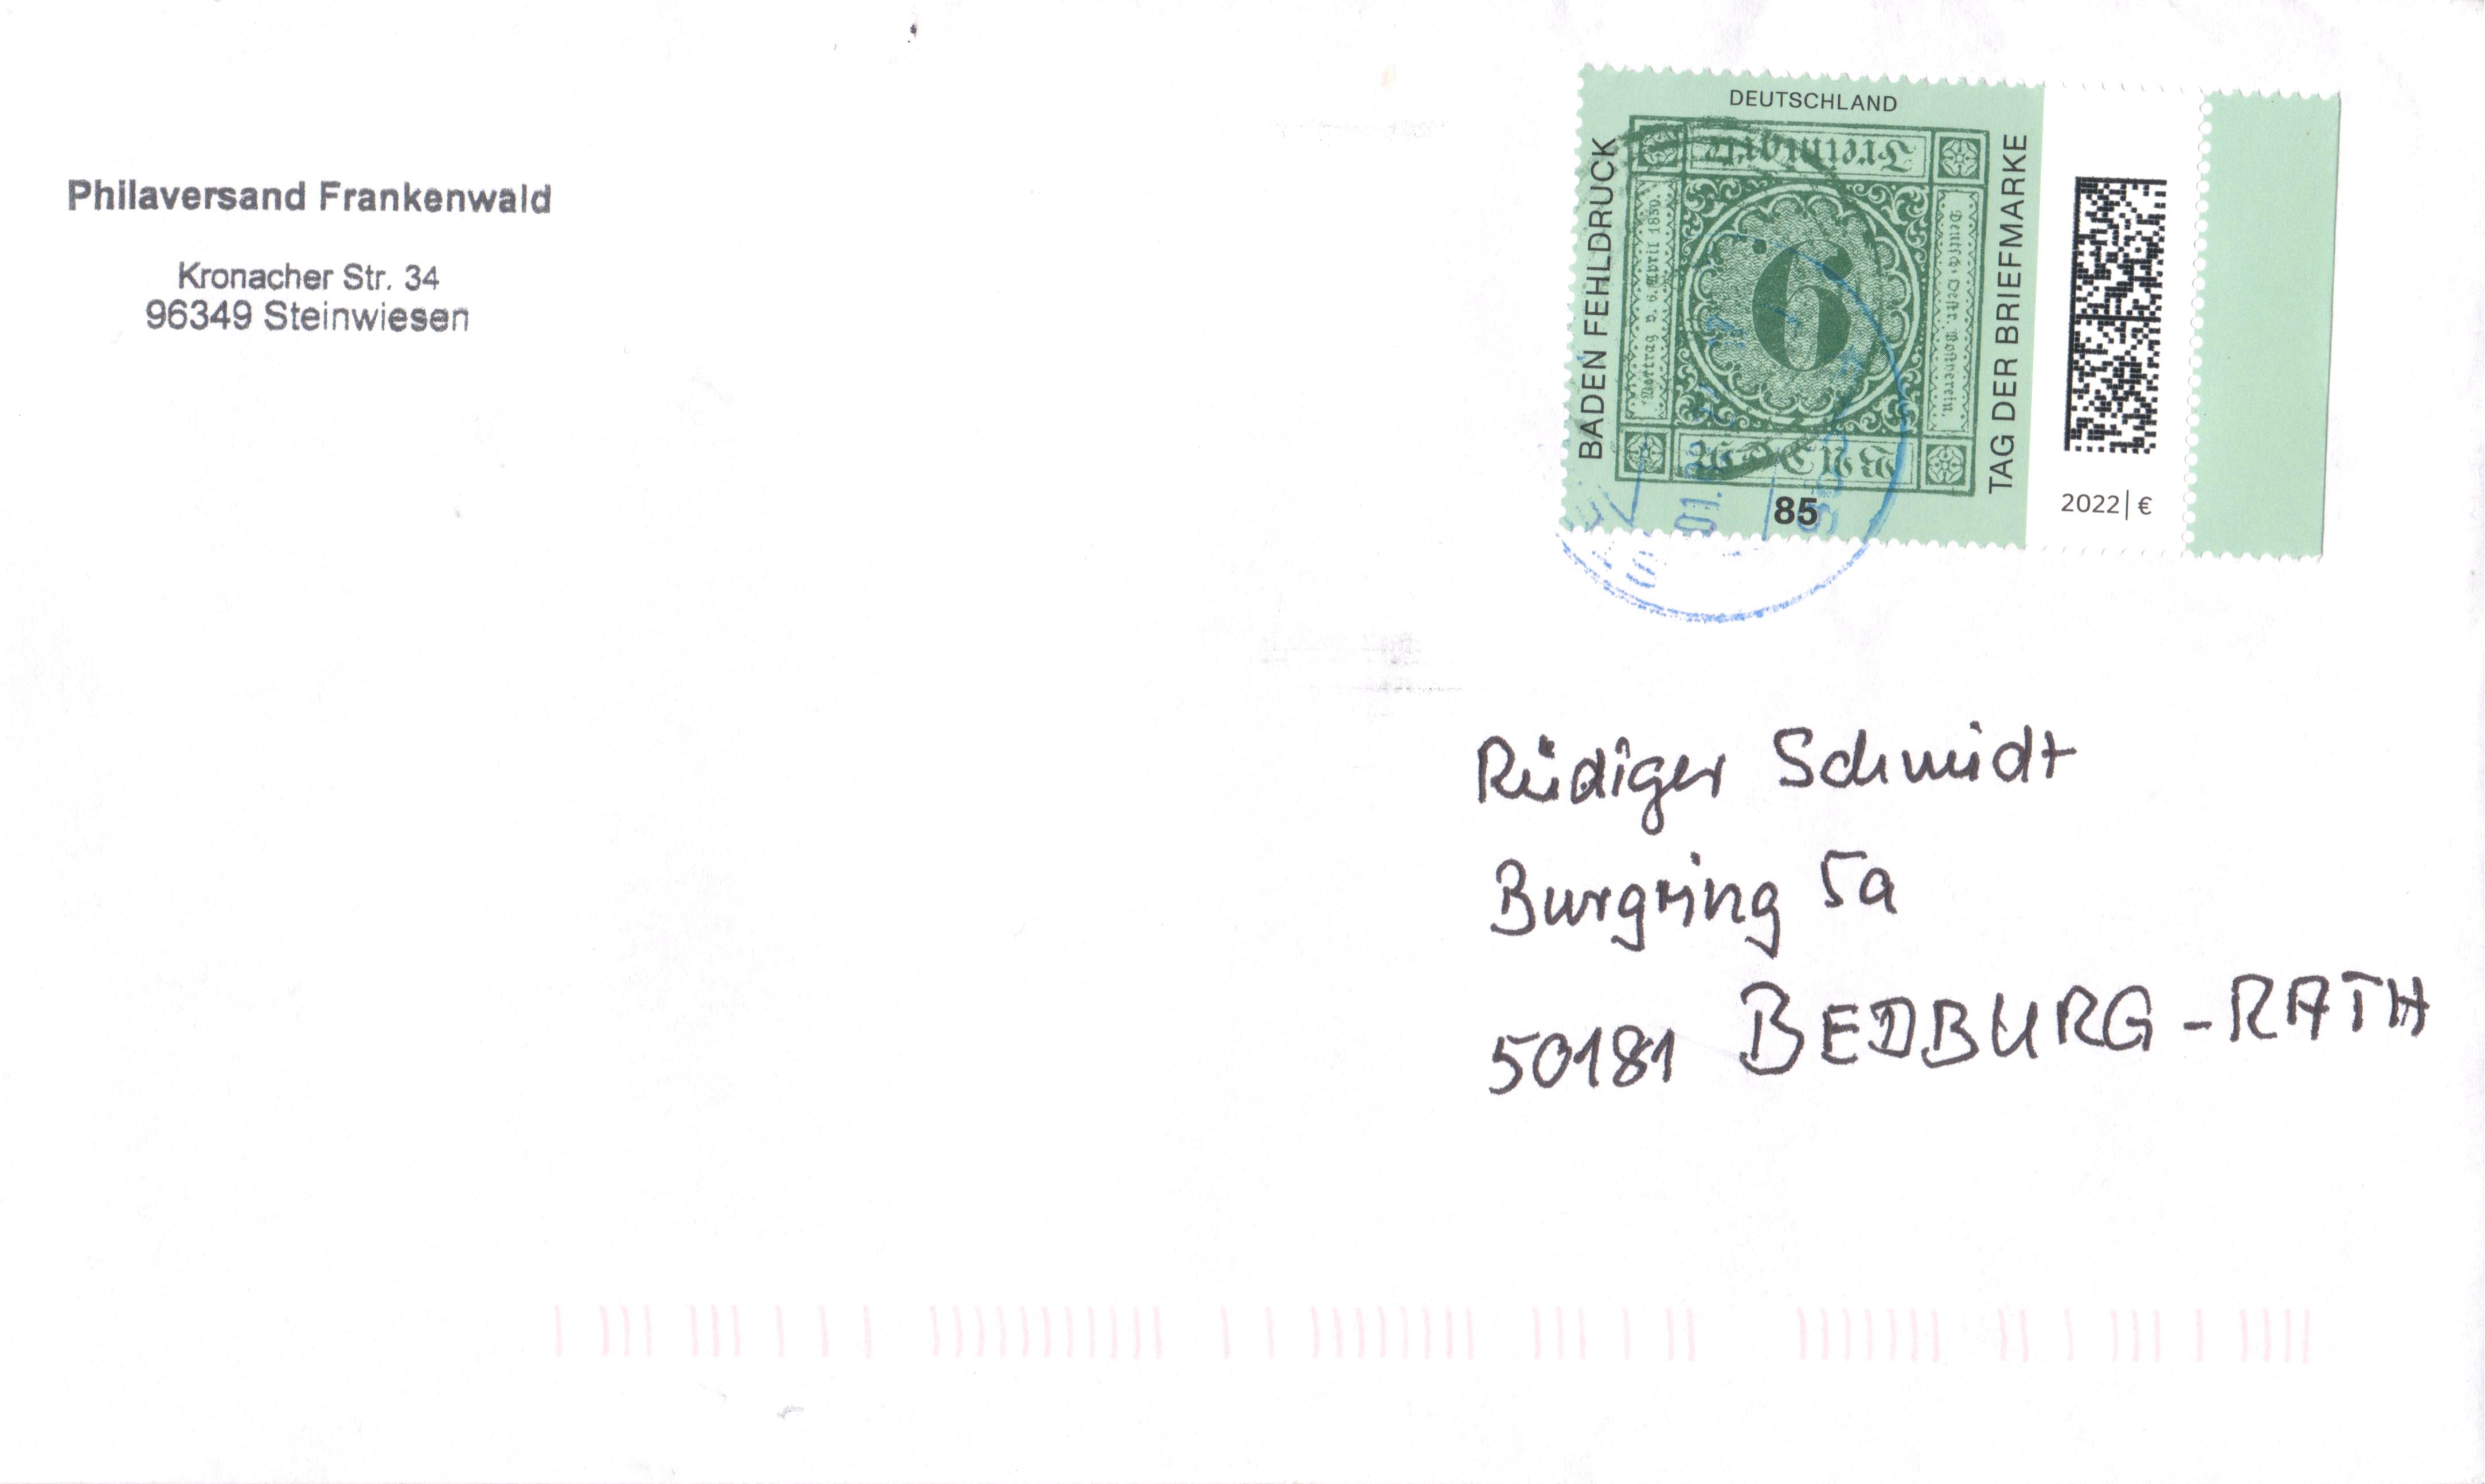 Philaversand Frankenwald
Kronacher Str. 34
96349 Steinwiesen
DEUTSCHLAND
BADEN FEHLDRUCK
TAG DER BRIEFMARKE
Freimarke
Vertrag v. 6. April 1850.
6
Deutsch-Oestr. Postverein.
BADEN
85
2022 | €
01.
Rüdiger Schmidt
Burgring 5a
50181 BEDBURG - RATH